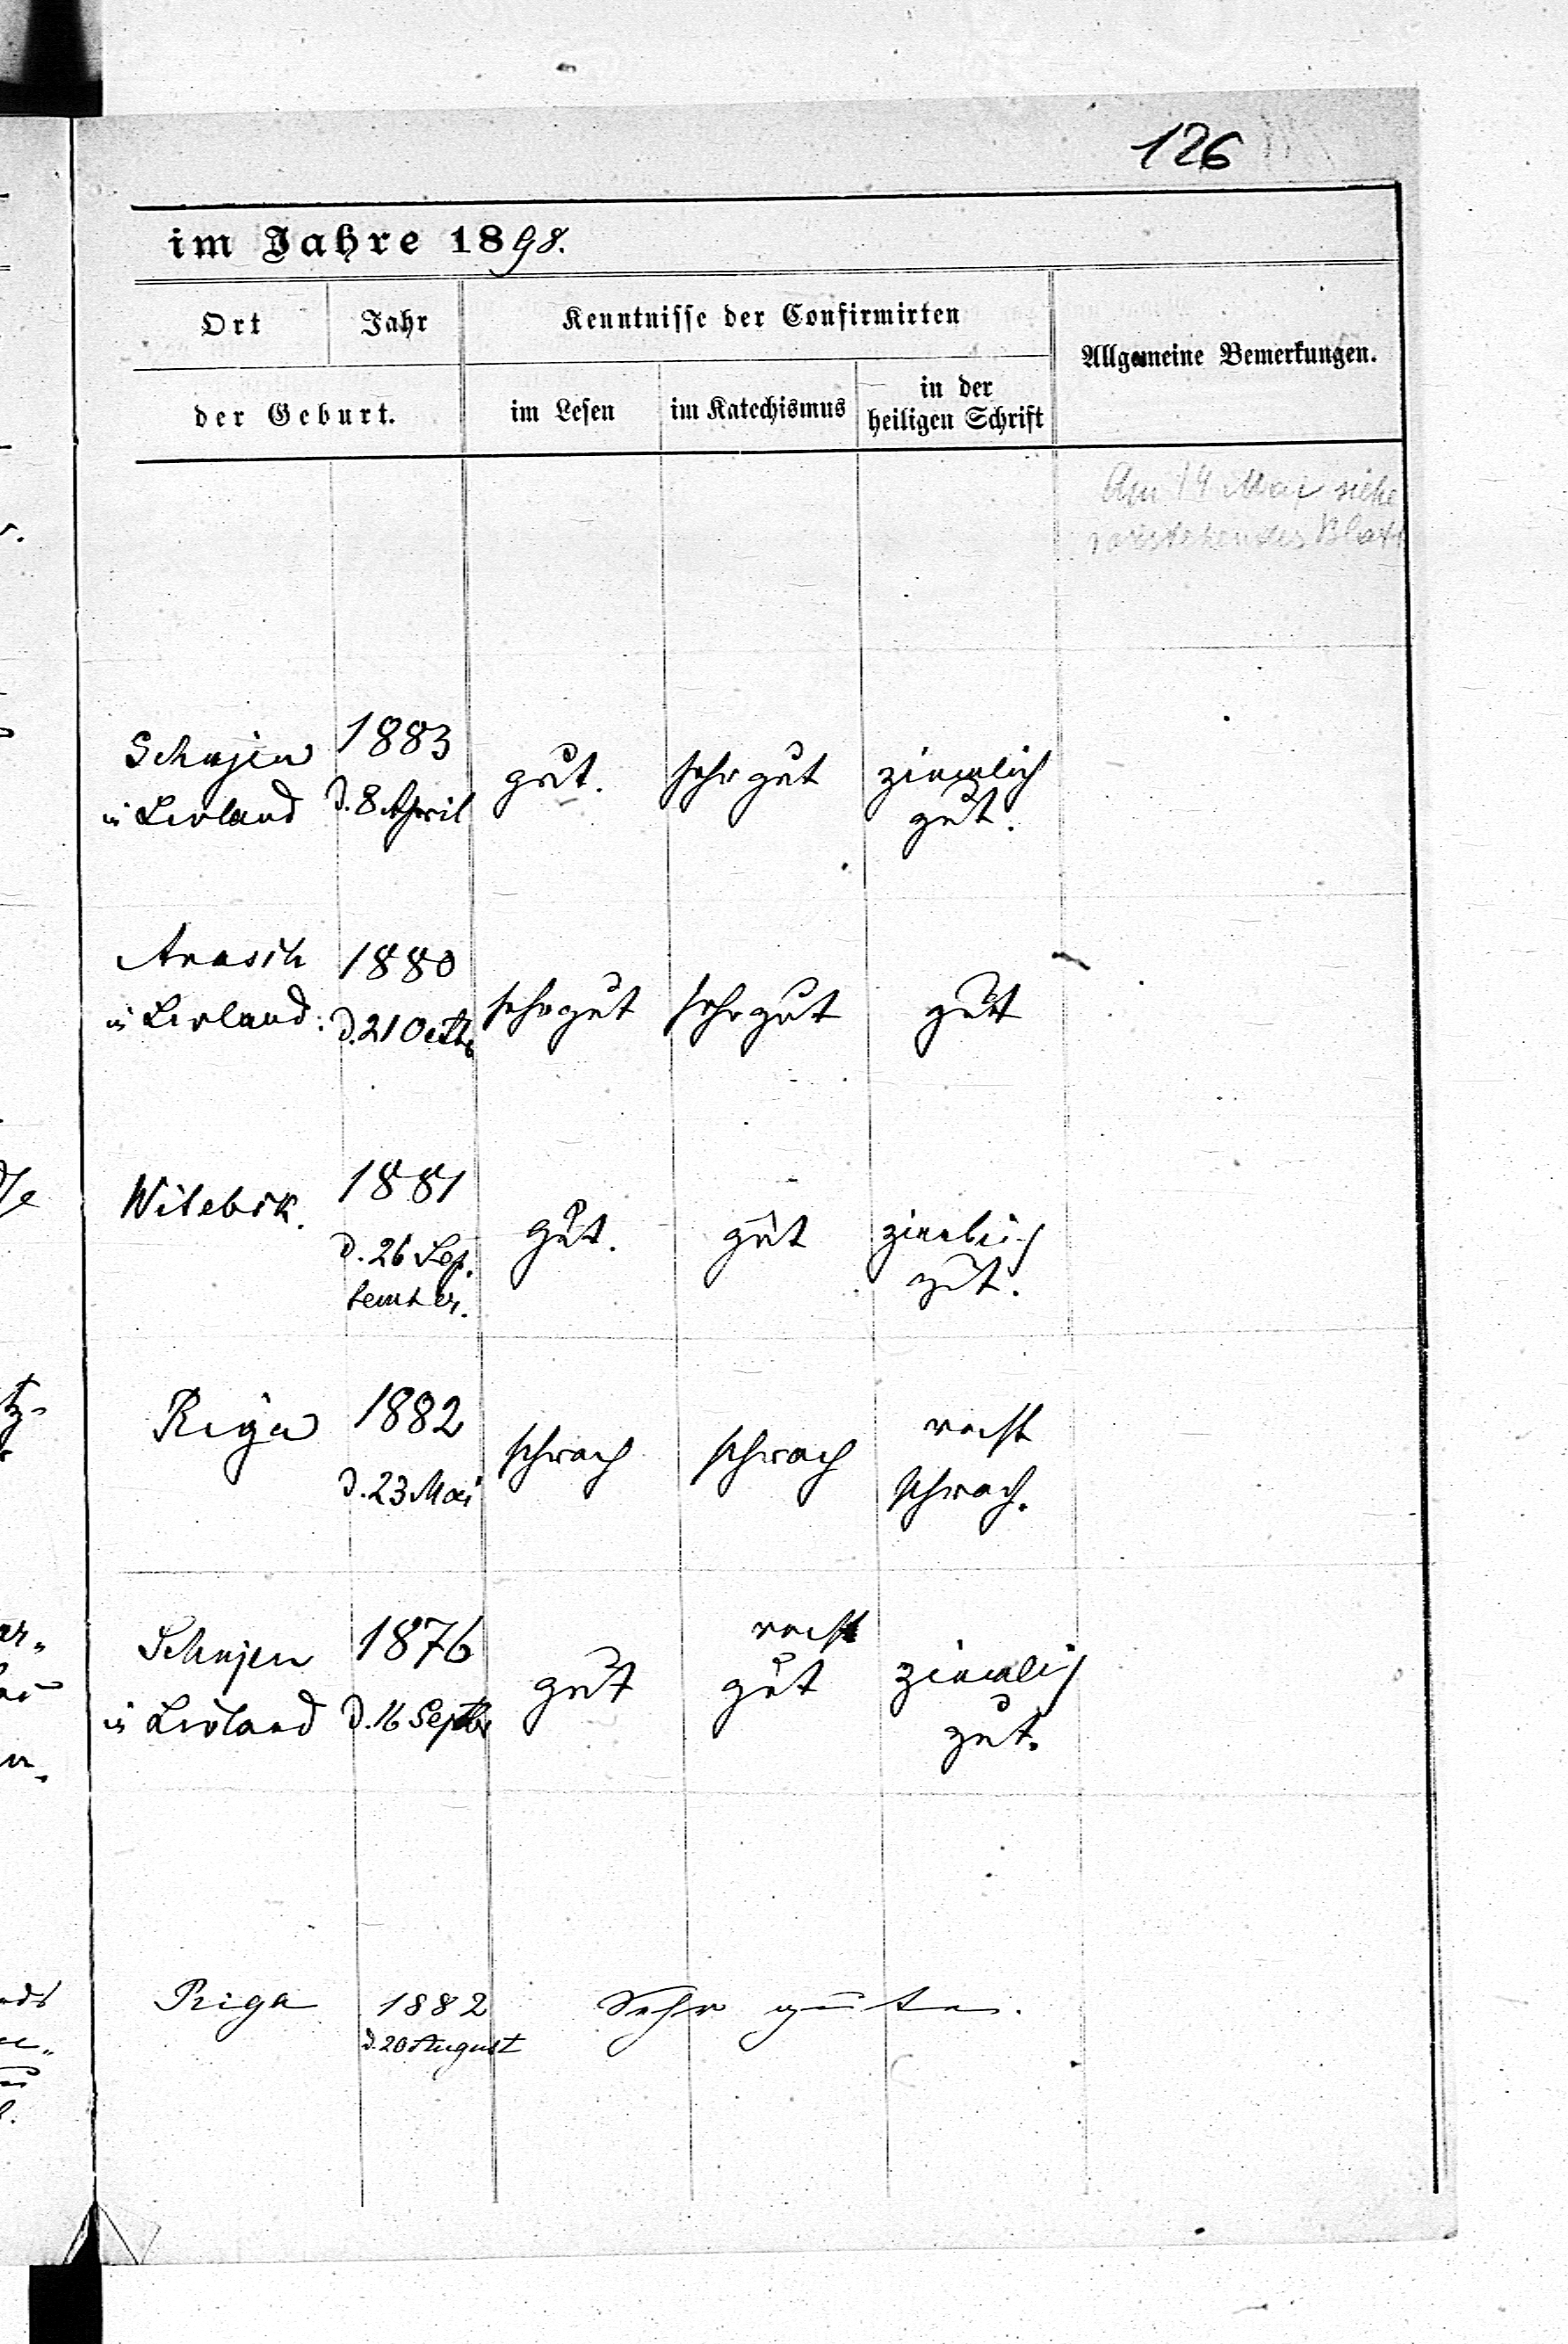 126
im Jahre 1898.
Ort
Jahr
der Geburt.
Kenntnisse der Confirmirten
im Lesen
im Katechismus
in der
heiligen Schrift
Allgemeine Bemerkungen.
Am 14 Mai siehe
Blatt
Schujen
in Livland
1883
d. 8 April
gut.
sehr gut
ziemlich
gut.
Arasch
in Livland.
1880
d. 21 Octb
sehr gut
sehr gut
gut
Witebsk.
1881
d. 26 Sep.
tember.
gut.
gut
ziemlich
gut.
Riga
1882
d. 23 Mai
schwach
schwach
recht
schwach.
Schujen
in Livland
1876
d. 16 Septbr
gut
recht
gut
ziemlich
gut.
Riga
1882
d. 20 August
Sehr gute.